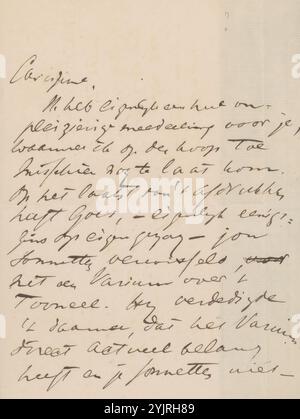 Carissime,
Ik heb eigenlijk een on-
pleizierige mededeeling voor je,
waarmee ik op den hoop toe
misschien nog te laat kom.
Op het laatst van 't afdrukken
heeft Goes, – eigenlijk eenigs-
zins op eigen gezag – jou
sonnetten verwisseld,
met een Varium over 't
Tooneel. Hij verdedigde
't daarmee, dat het Varium
direct actueel belang
heeft en je sonnetten niet –
alamy
Image ID: 2YJRH89
www.alamy.com